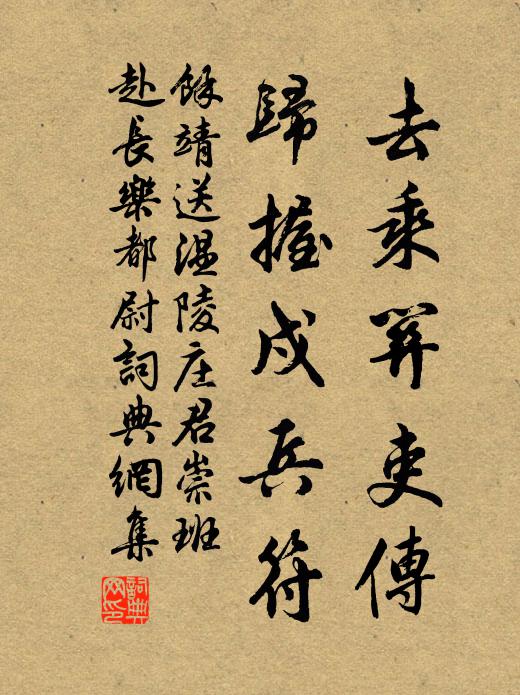 去乘關吏傳
歸握戍兵符
餘靖送温陵庄君崇班
赴長樂都尉詞典網集
詞典网印